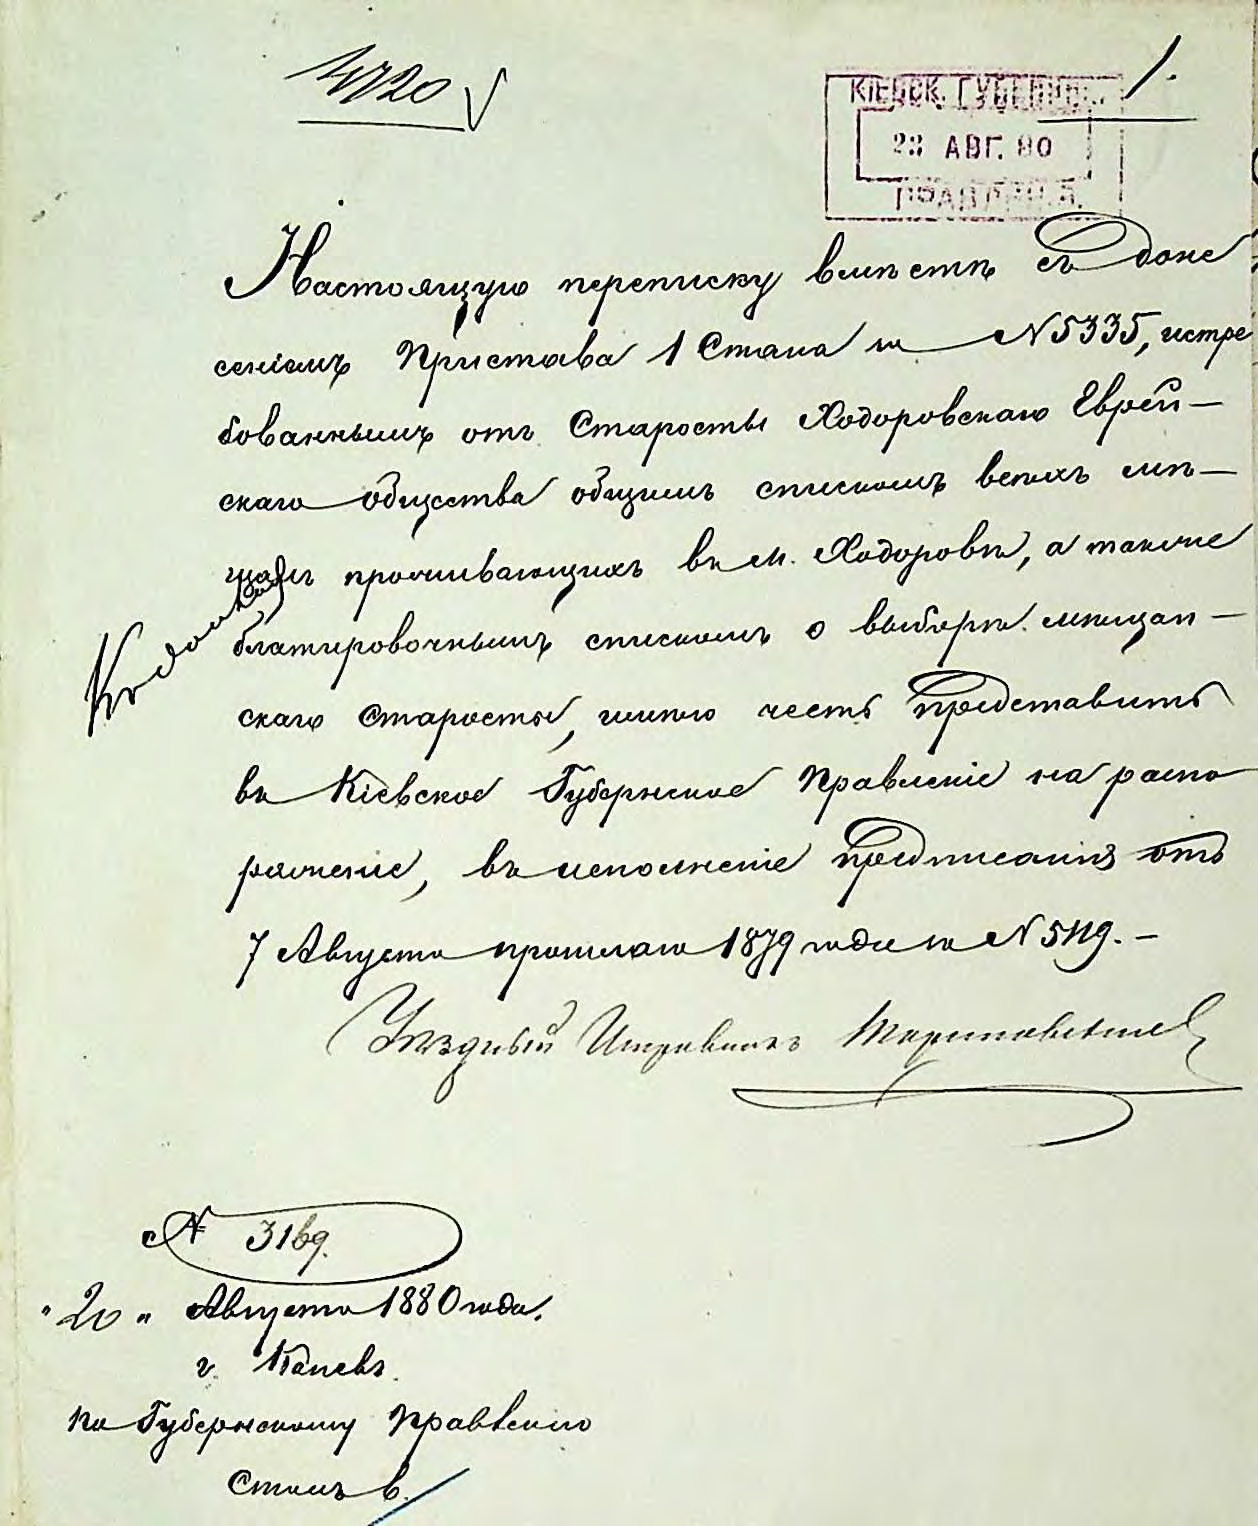 4720
1.
КІЕВСК. ГУБЕРНС.
23 АВГ. 80
ПРАВЛЕНІЯ.
Настоящую переписку вместѣ съ доне
сеніемъ Пристава 1 Стана за N 5335, истре
бованнымъ отъ Старосты Ходоровскаго Еврей-
скаго общества общимъ спискомъ всѣхъ мѣ-
щанъ проживающихъ въ м. Ходоровѣ, а также
блатировочнымъ спискомъ о выборѣ мѣщан-
скаго Старосты, имѣю честь представить
въ Кіевское Губернское Правленіе на распо
ряженіе, въ исполненіе предписанія отъ
7 Августа прошлаго 1879 года за N 5119.-
Уѣздный Исправникъ
N 3169.
"20" Августа 1880 года.
г. Каневъ
По Губернскому Правленію
Столъ 6.